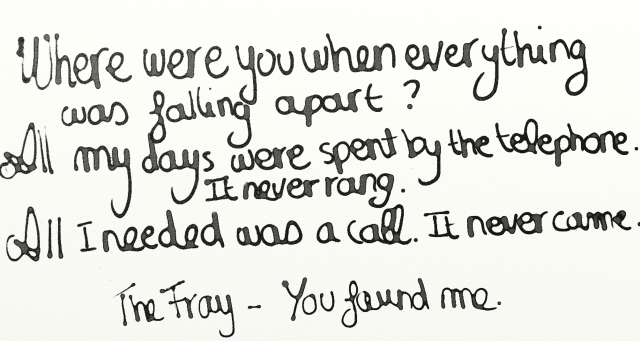 Where were you when everything
was falling apart ?
All my days were spent by the telephone.
It never rang.
All I needed was a call. It never came.
The Fray - You found me.